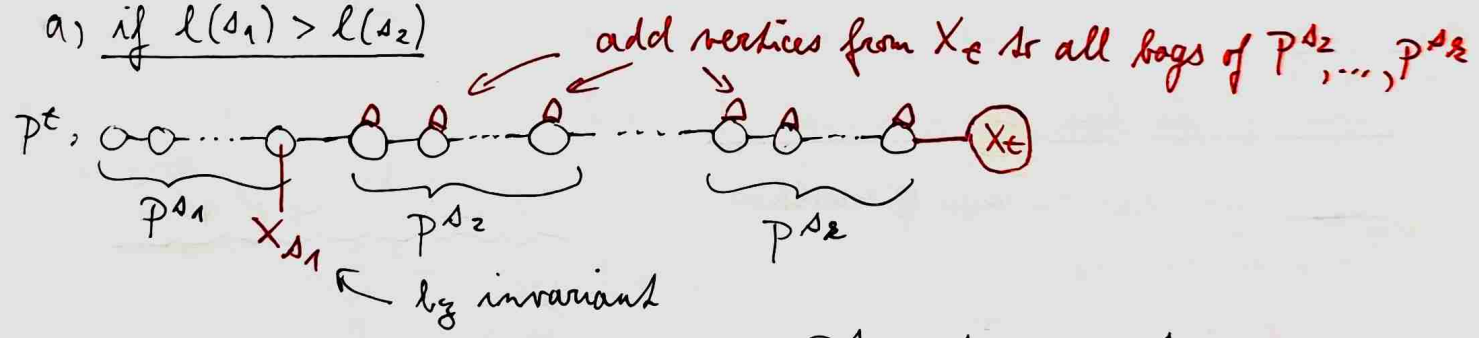 a) if l(s₁) > l(s₂)
add vertices from Xₜ to all bags of P^{s₂},...,P^{s_k}
Pᵗ: ...... ...... ...... ...... Xₜ
P^{s₁} P^{s₂} P^{s_k}
X_{s₁}
by invariant